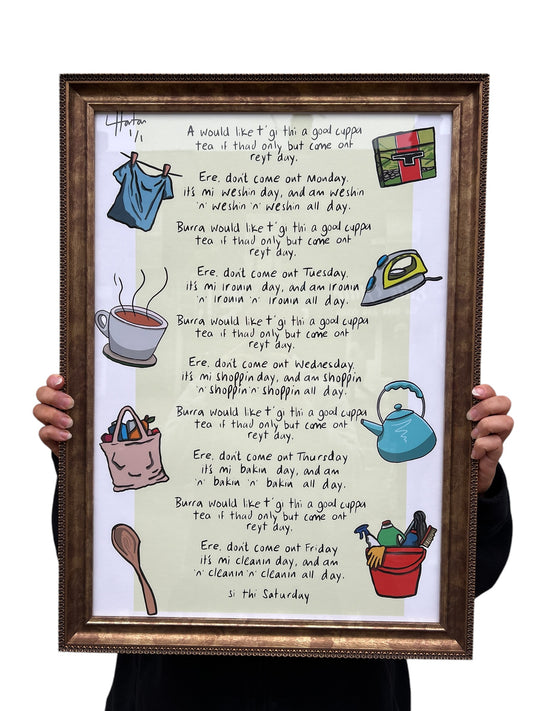 LHorton
1/1
A would like t'gi thi a good cuppa
tea if thad only but come ont
reyt day.
Ere, don't come ont Monday.
it's mi weshin day, and am weshin
'n' weshin 'n' weshin all day.
Burra would like t'gi thi a good cuppa
tea if thad only but come ont
reyt day.
Ere, don't come ont Tuesday.
it's mi ironin day, and am ironin
'n' ironin 'n' ironin all day.
Burra would like t'gi thi a good cuppa
tea if thad only but come ont
reyt day.
Ere, don't come ont Wednesday.
it's mi shoppin day, and am shoppin
'n' shoppin 'n' shoppin all day.
Burra would like t'gi thi a good cuppa
tea if thad only but come ont
reyt day.
Ere, don't come ont Thursday
it's mi bakin day, and am
'n' bakin 'n' bakin all day.
Burra would like t'gi thi a good cuppa
tea if thad only but come ont
reyt day.
Ere, don't come ont Friday
it's mi cleanin day, and am
'n' cleanin 'n' cleanin all day.
si thi Saturday
T